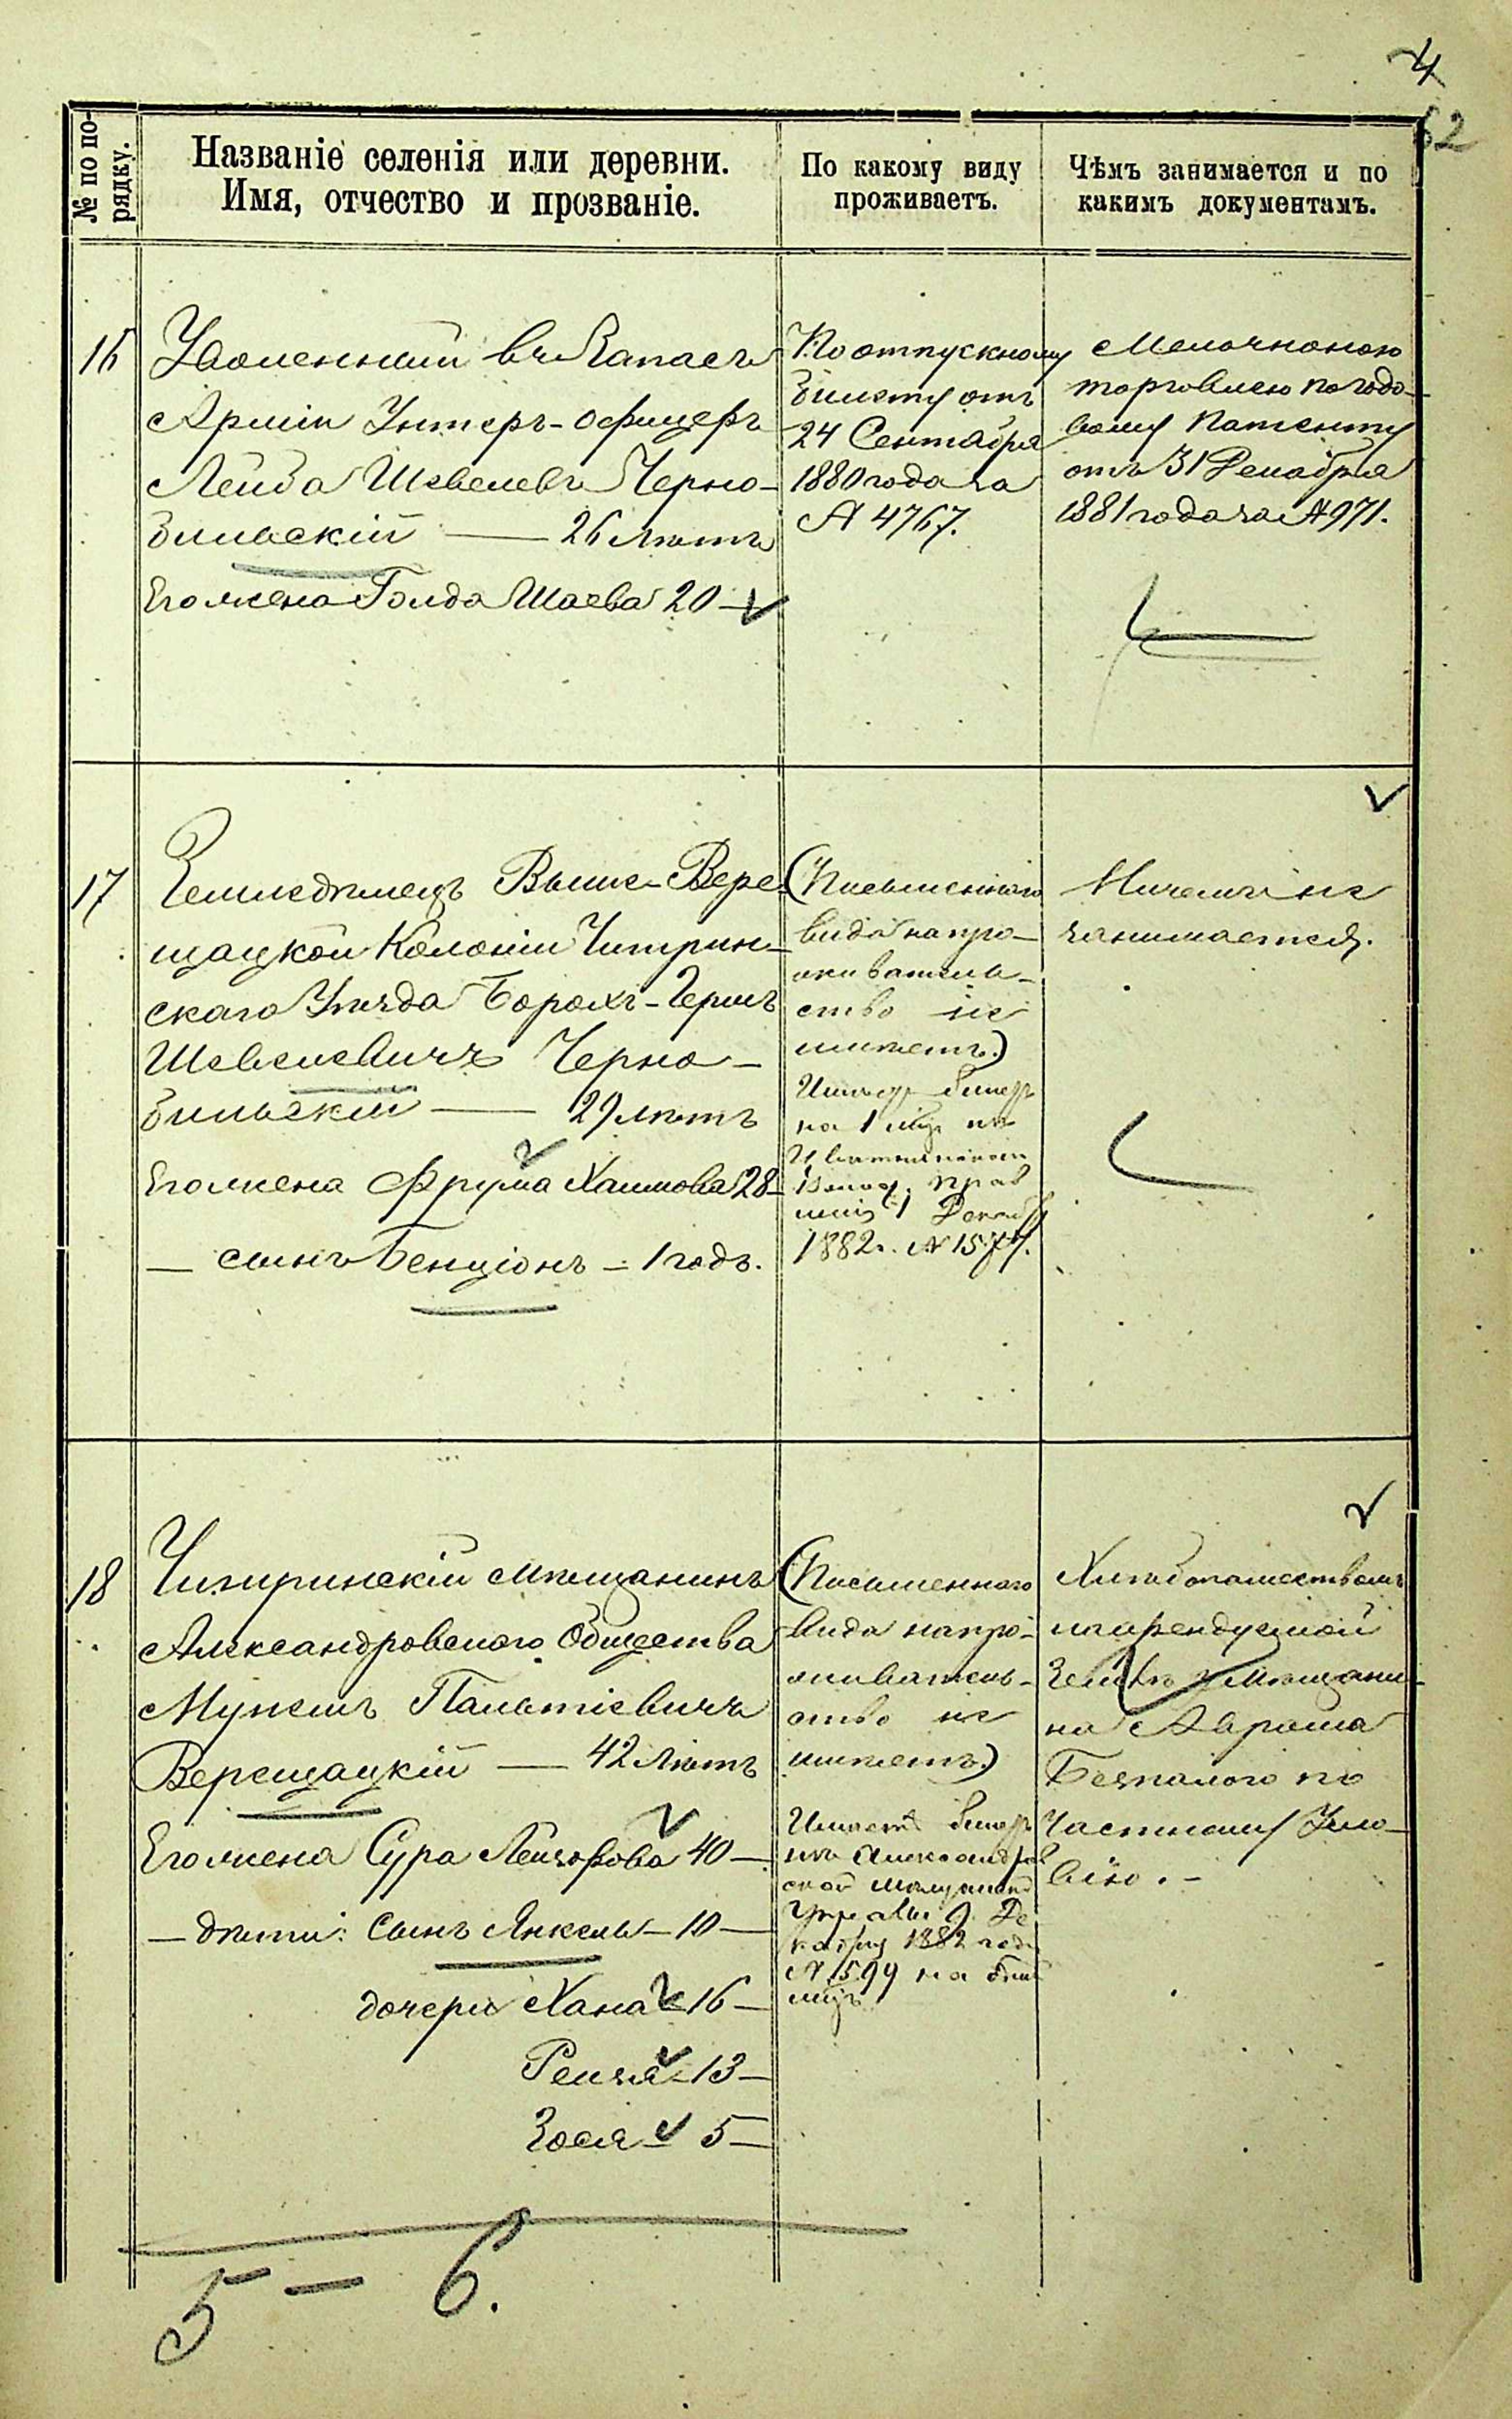 4
62
№ по по-
рядку.
Названіе селенія или деревни.
Имя, отчество и прозваніе.
По какому виду
проживаетъ.
Чѣмъ занимается и по
какимъ документамъ.
16
Уволенный въ Запасъ
Арміи Унтеръ-офицеръ
Лейба Шевелевъ Черно-
бильскій — 26 лѣтъ
Его жена Голда Шаева 20 —
По отпускному
билету отъ
24 Сентября
1880 года за
№ 4767.
Мелочною
торговлею по годо-
вому патенту
отъ 31 Декабря
1881 года за № 971.
17
Земледѣлецъ Выше-Вере-
щацкой Колоніи Чигрин-
скаго Уѣзда Борохъ-Гершъ
Шевелевичъ Черно-
бильскій — 29 лѣтъ
Его жена Фрума Хаимова 28 —
— сынъ Бенціонъ — 1 годъ.
(Письменнаго
вида на про-
живатель-
ство не
имѣетъ.)
билетъ
на 1
1882 г. №
Ничемъ не
занимается.
18
Чигиринскій мѣщанинъ
Александровскаго Общества
Мунешъ Пальтіевичъ
Верещацкій — 42 лѣтъ
Его жена Сура Лейзорова 40 —
— дѣти: сынъ Янкель — 10 —
дочери Хана — 16 —
Рейзя — 13 —
Зося — 5 —
(Письменнаго
вида на про-
живатель-
ство не
имѣетъ.)
Имѣетъ билетъ
изъ Александров
ской мѣщанской
Управы 9 Де
кабря 1882 года
№ 599 на
Хлебопашествомъ
на арендуемой
Землѣ у мѣщани-
на Аврама
по
частному Усло-
вію. —
5 — 6.